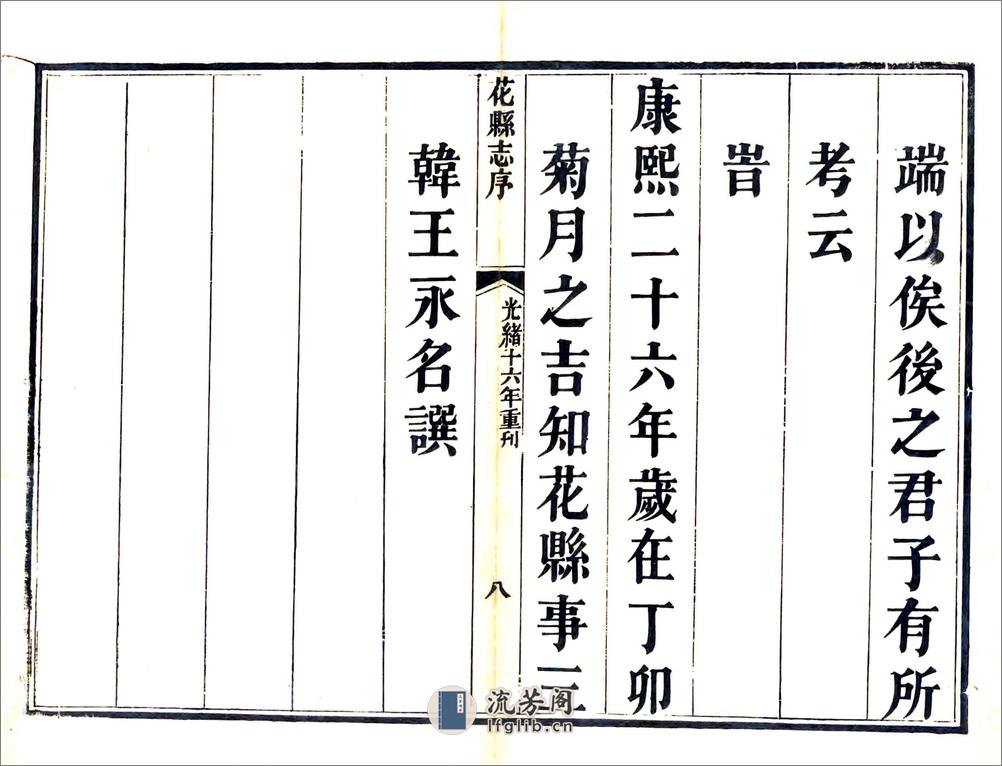 端以俟後之君子有所
考云
旹
康熙二十六年歲在丁卯
菊月之吉知花縣事三
花縣志序
光緒十六年重刊
八
韓王永名撰
流芳阁
lfglib.cn